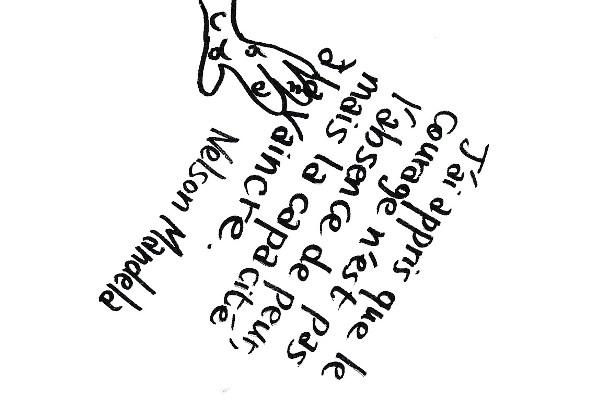 J'ai appris que le
Courage n'est pas
l'absence de peur,
mais la capacité
à la vaincre.
Nelson Mandela